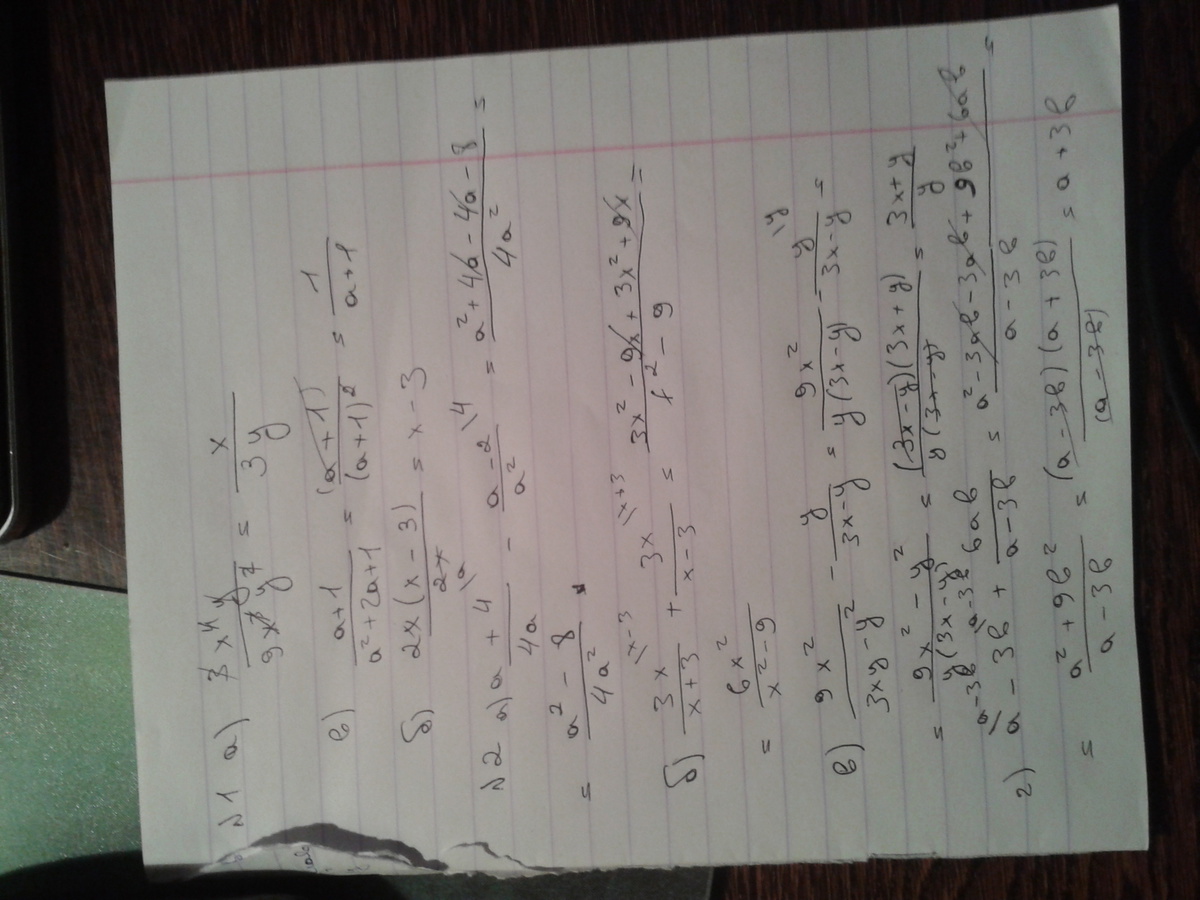 №1 а) 3x⁴y / 9x³y² = x / 3y
в) a+1 / a²+2a+1 = (a+1) / (a+1)² = 1 / a+1
б) 2x(x-3) / 2x = x-3
№2 а) a+4 \a / 4a - a-2 \4 / a² = a²+4a-4a-8 / 4a² =
= a²-8 / 4a²
б) 3x \x-3 / x+3 + 3x \x+3 / x-3 = 3x²-9x+3x²+9x / x²-9 =
= 6x² / x²-9
в) 9x² / 3xy-y² - y / 3x-y = 9x² / y(3x-y) - y \y / 3x-y =
= 9x²-y² / y(3x-y) = (3x-y)(3x+y) / y(3x-y) = 3x+y / y
г) a \a-3b - 3b \a-3b + 6ab / a-3b = a²-3ab-3ab+9b²+6ab / a-3b =
= a²+9b² / a-3b = (a-3b)(a+3b) / (a-3b) = a+3b